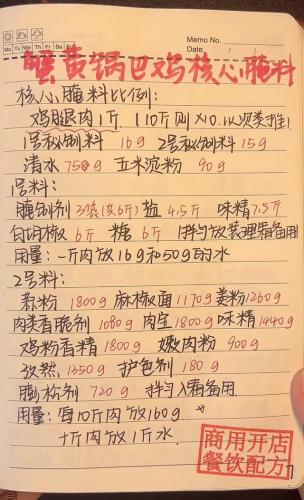 Memo No.
Mo Tu We Th Fr Sa Su
Date / /
蟹黄锅巴鸡核心腌料
核心腌料比例:
鸡腿肉1斤 (10斤则×10.以次类推)
1号秘制料 16g 2号秘制料15g
清水 750g 玉米淀粉 90g
1号料:
腌制剂 3袋(共6斤) 盐 4.5斤 味精7.5斤
白胡椒 6斤 糖 6斤 拌匀放装理箱备用
用量:一斤肉放16g和50g的水
2号料:
蒜粉 1800g 麻椒面1170g 姜粉1260g
肉类香脆剂 1080g 肉宝1800g 味精1440g
鸡粉香精 1800g 嫩肉粉 900g
孜然 1350g 护色剂 180g
膨松剂 720g 拌匀入箱备用
用量:每10斤肉放160g
十斤肉放1斤水
商用开店
餐饮配方